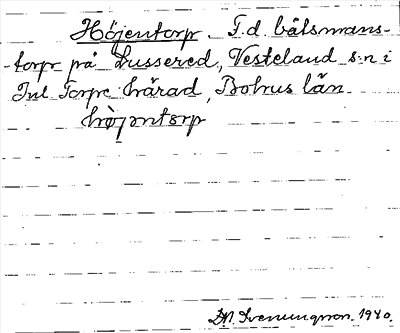 Höjentorp. F.d. båtsmans-
-torp på Lussered, Vesteland s:n i
Inl. Torpe härad, Bohus län.
højentorp
1940.